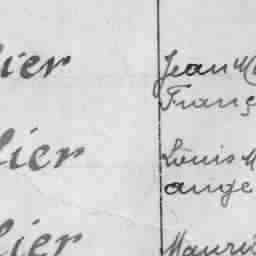 lier Jean M
Franç
lier Louis M
ange
lier Mauri